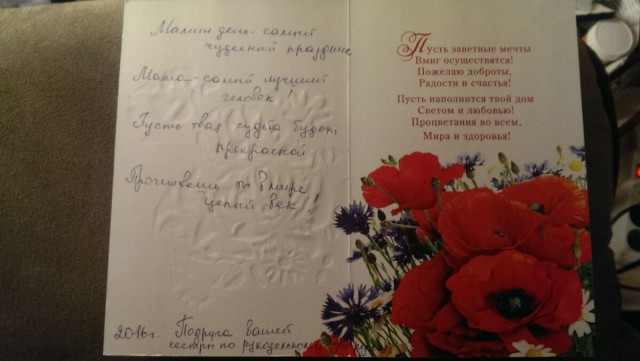 Мамин день - самый
чудесный праздник
Мама - самый лучший
человек!
Пусть твоя судьба будет,
прекрасной
Проживешь ты в мире
целый век!
2016г. Подруга вашей
сестры по рукодельному
Пусть заветные мечты
Вмиг осуществятся!
Пожелаю доброты,
Радости и счастья!
Пусть наполнится твой дом
Светом и любовью!
Процветания во всем,
Мира и здоровья!